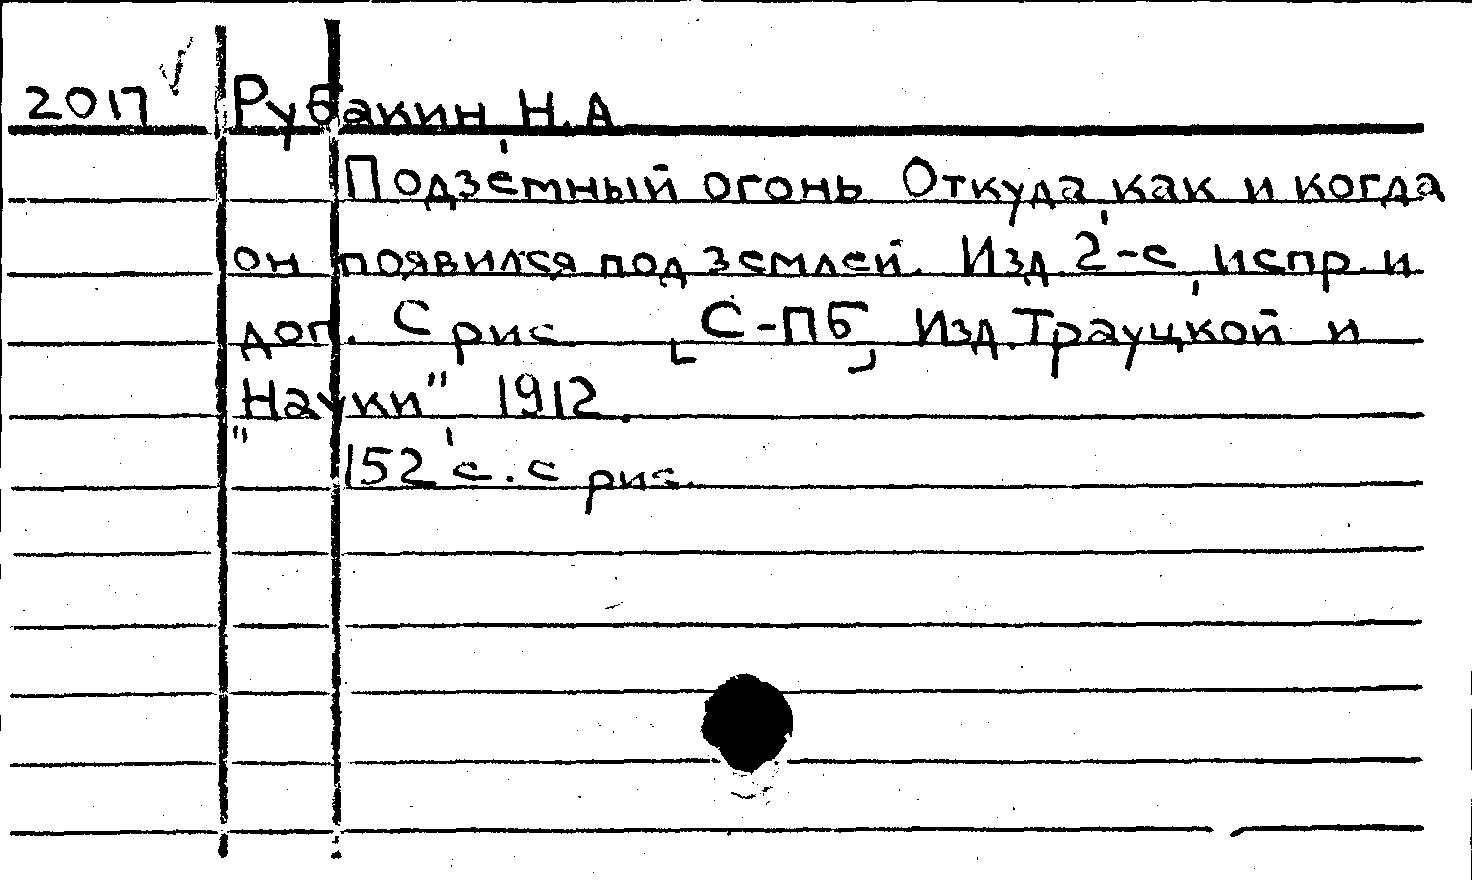 2017 Рубакин, Н.А
Подземный огонь Откуда, как и когда
он появился под землей. Изд. 2-е, испр. и
доп. С рис. [С-ПБ], Изд. Трауцкой и
"Науки" 1912.
152 с. с рис.